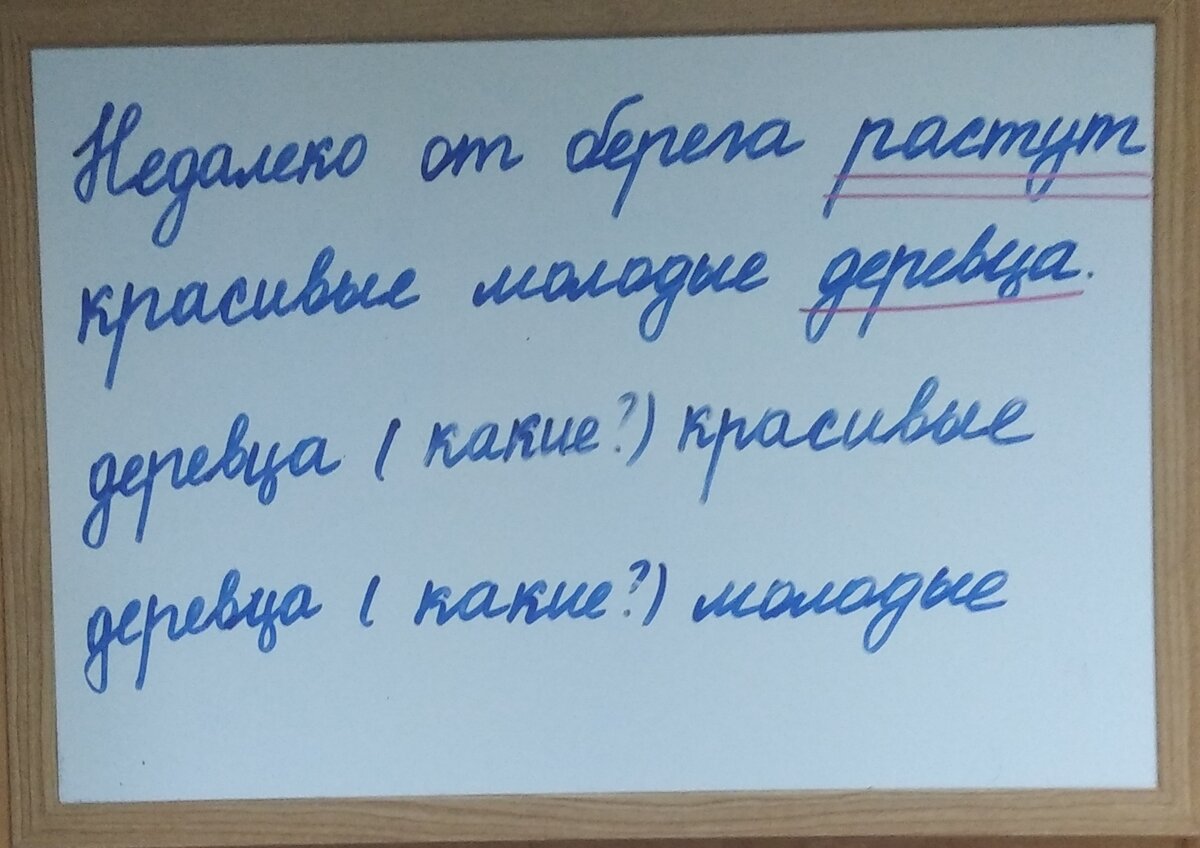 Недалеко от берега растут
красивые молодые деревца.
деревца ( какие?) красивые
деревца ( какие?) молодые